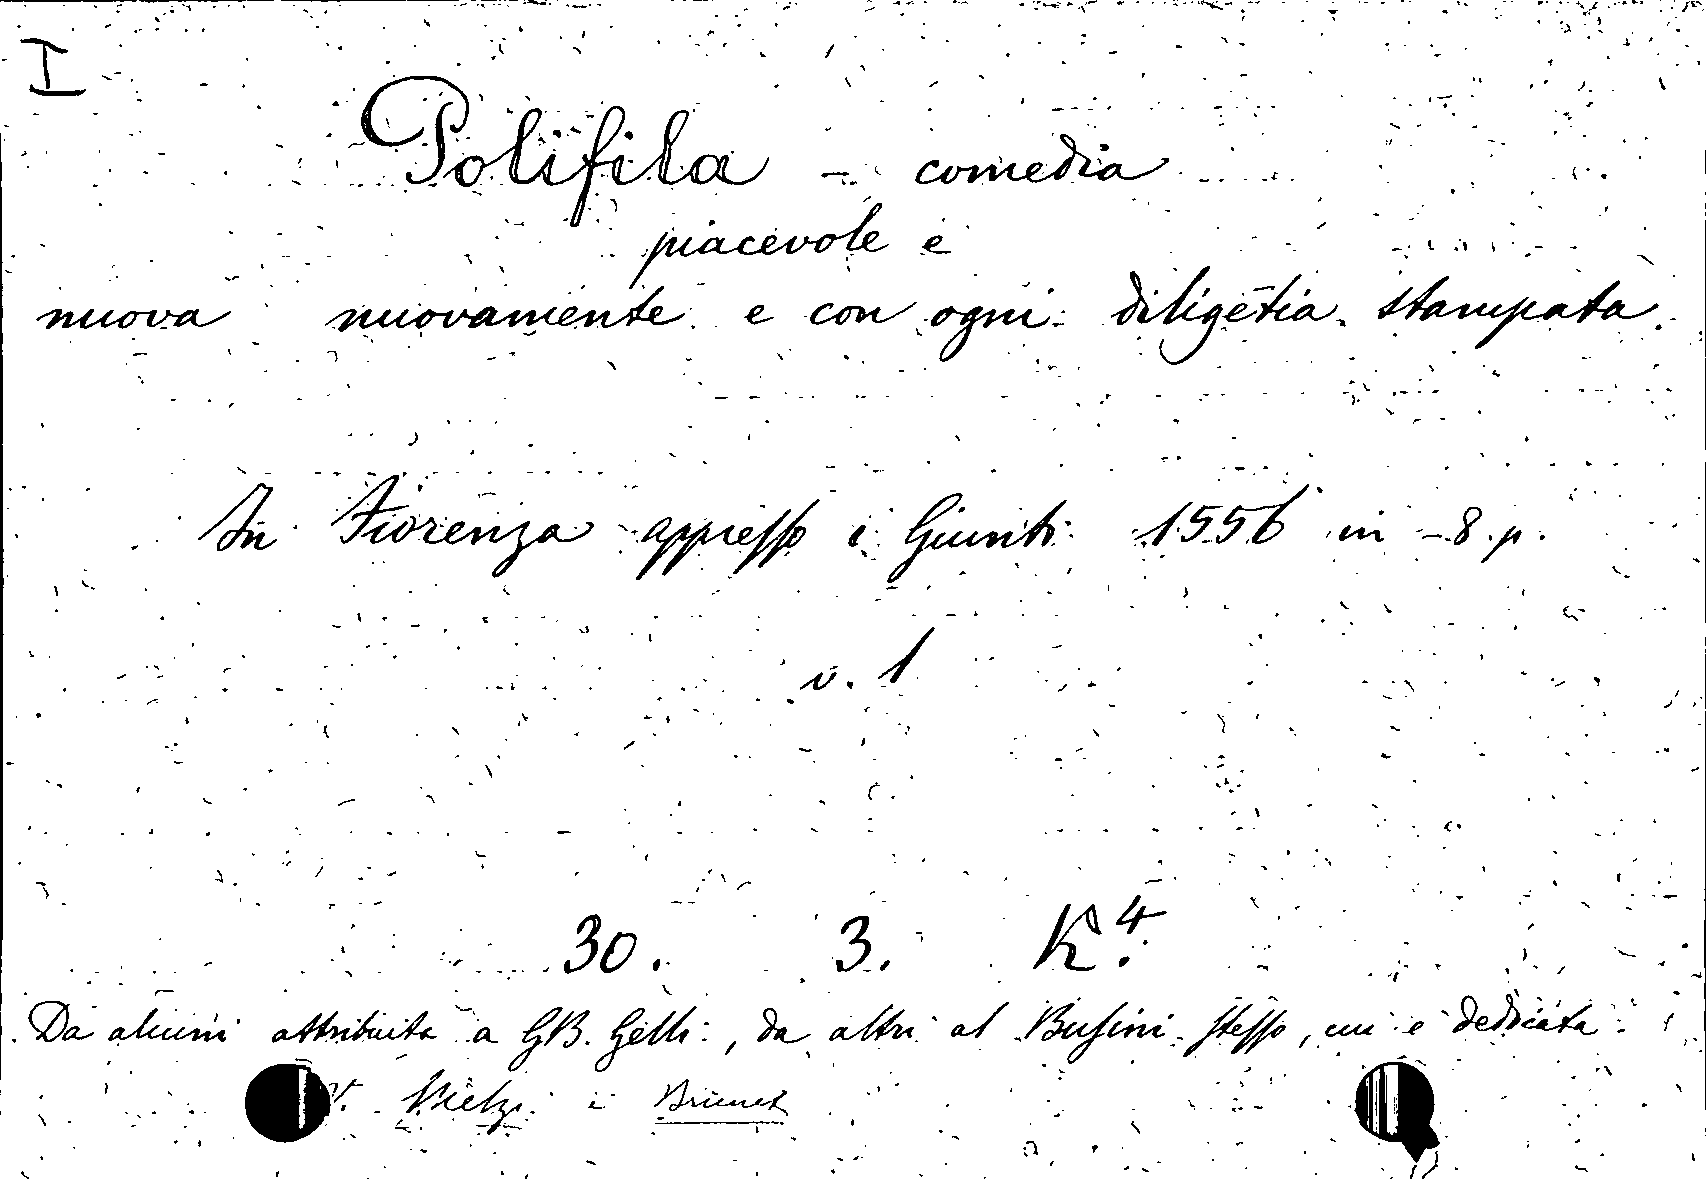 I
Polifila - comedia
piacevole e
nuova nuovamente e con ogni diligētia stampata.
In Fiorenza appresso i Giunti 1556 in -8. p.
v. 1
30. 3. K⁴.
Da alcuni attribuita a GB. Gelli, da altri al Busini stesso, cui è dedicata.
V. Melzi i Brunet